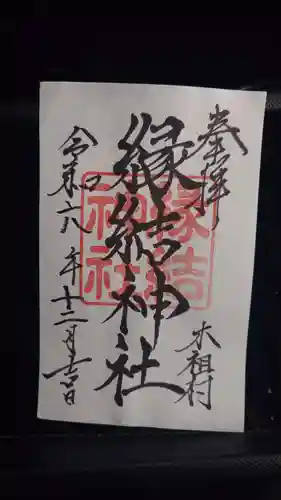 奉拝
木祖村
縁結神社
縁結
神社
令和六年十二月吉日